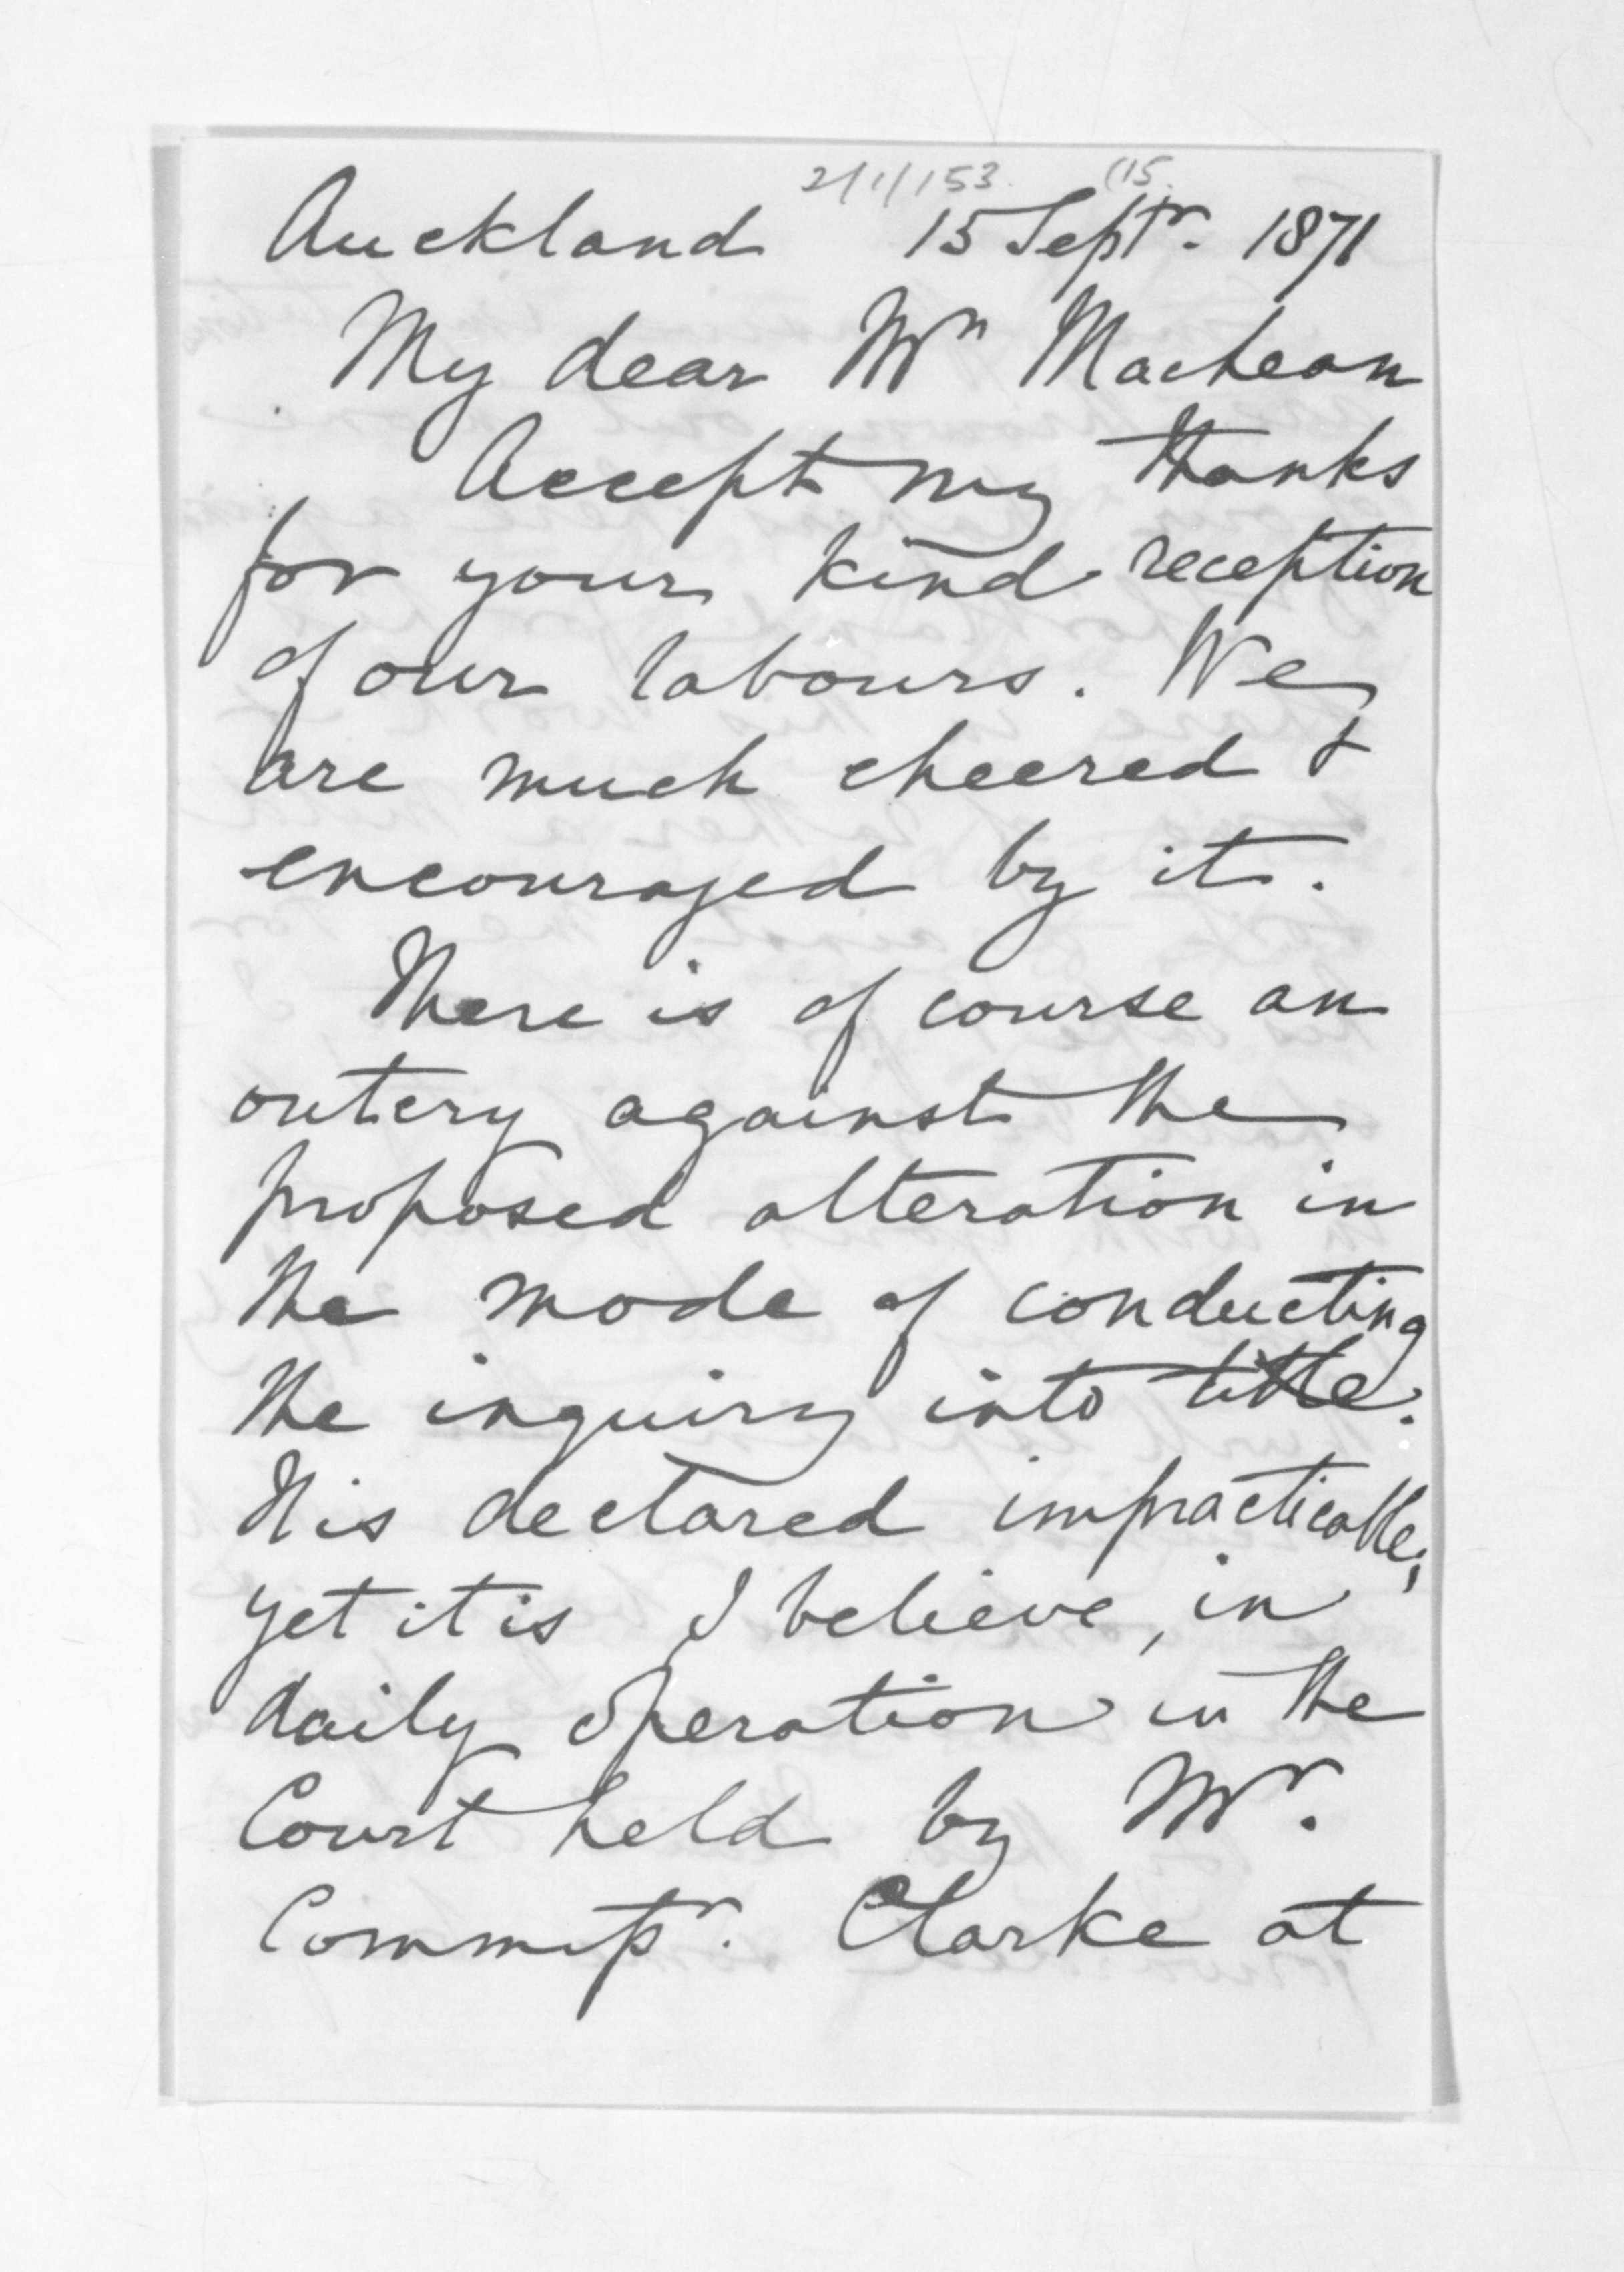 2/1/153 (15.
Auckland 15 Septr. 1871
My dear Mr MacLean
Accept my thanks
for your kind reception
of our labours. We
are much cheered &
encouraged by it.
There is of course an
outcry against the
proposed alteration in
the mode of conducting
the inquiry into title.
It is declared impracticable;
yet it is I believe, in
daily operation in the
Court held by Mr.
Commissr. Clarke at